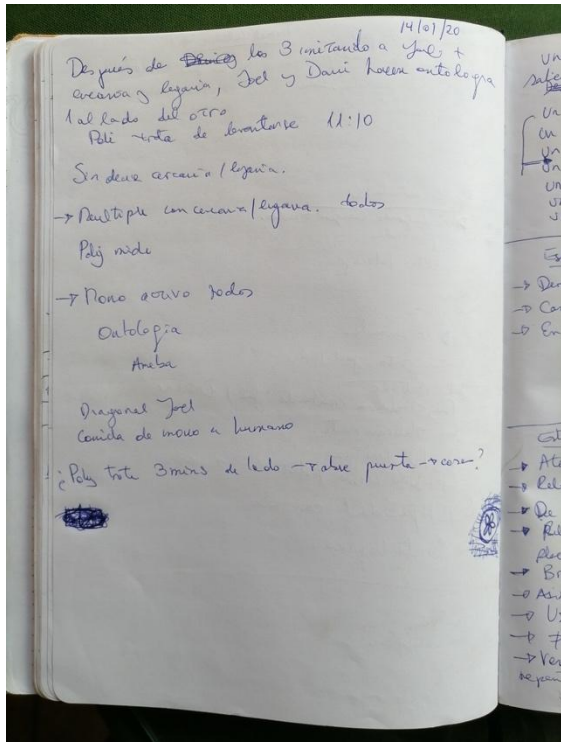 14/01/20
Después de los 3 imitando a Jul +
cercanía y lejanía, Joel y Dani hacen ontología
1 al lado del otro
Poli trata de levantarse 11:10
Sin dene cercanía / lejanía.
→ Multiple con cercanía / lejanía. todos
Poly mide
→ Mono activo todos
Ontología
Ameba
Diagonal Joel
Comida de mono a humano
¿Poly trote 3 mins de lado → abre puerta → corre?
Un
Un
Un
Un
→ Der
→ Co
→ En
→ At
→ Rel
→ De
→ Rel
plac
→ Br
→ Asu
→ Us
→ 7
→ Ver
repen